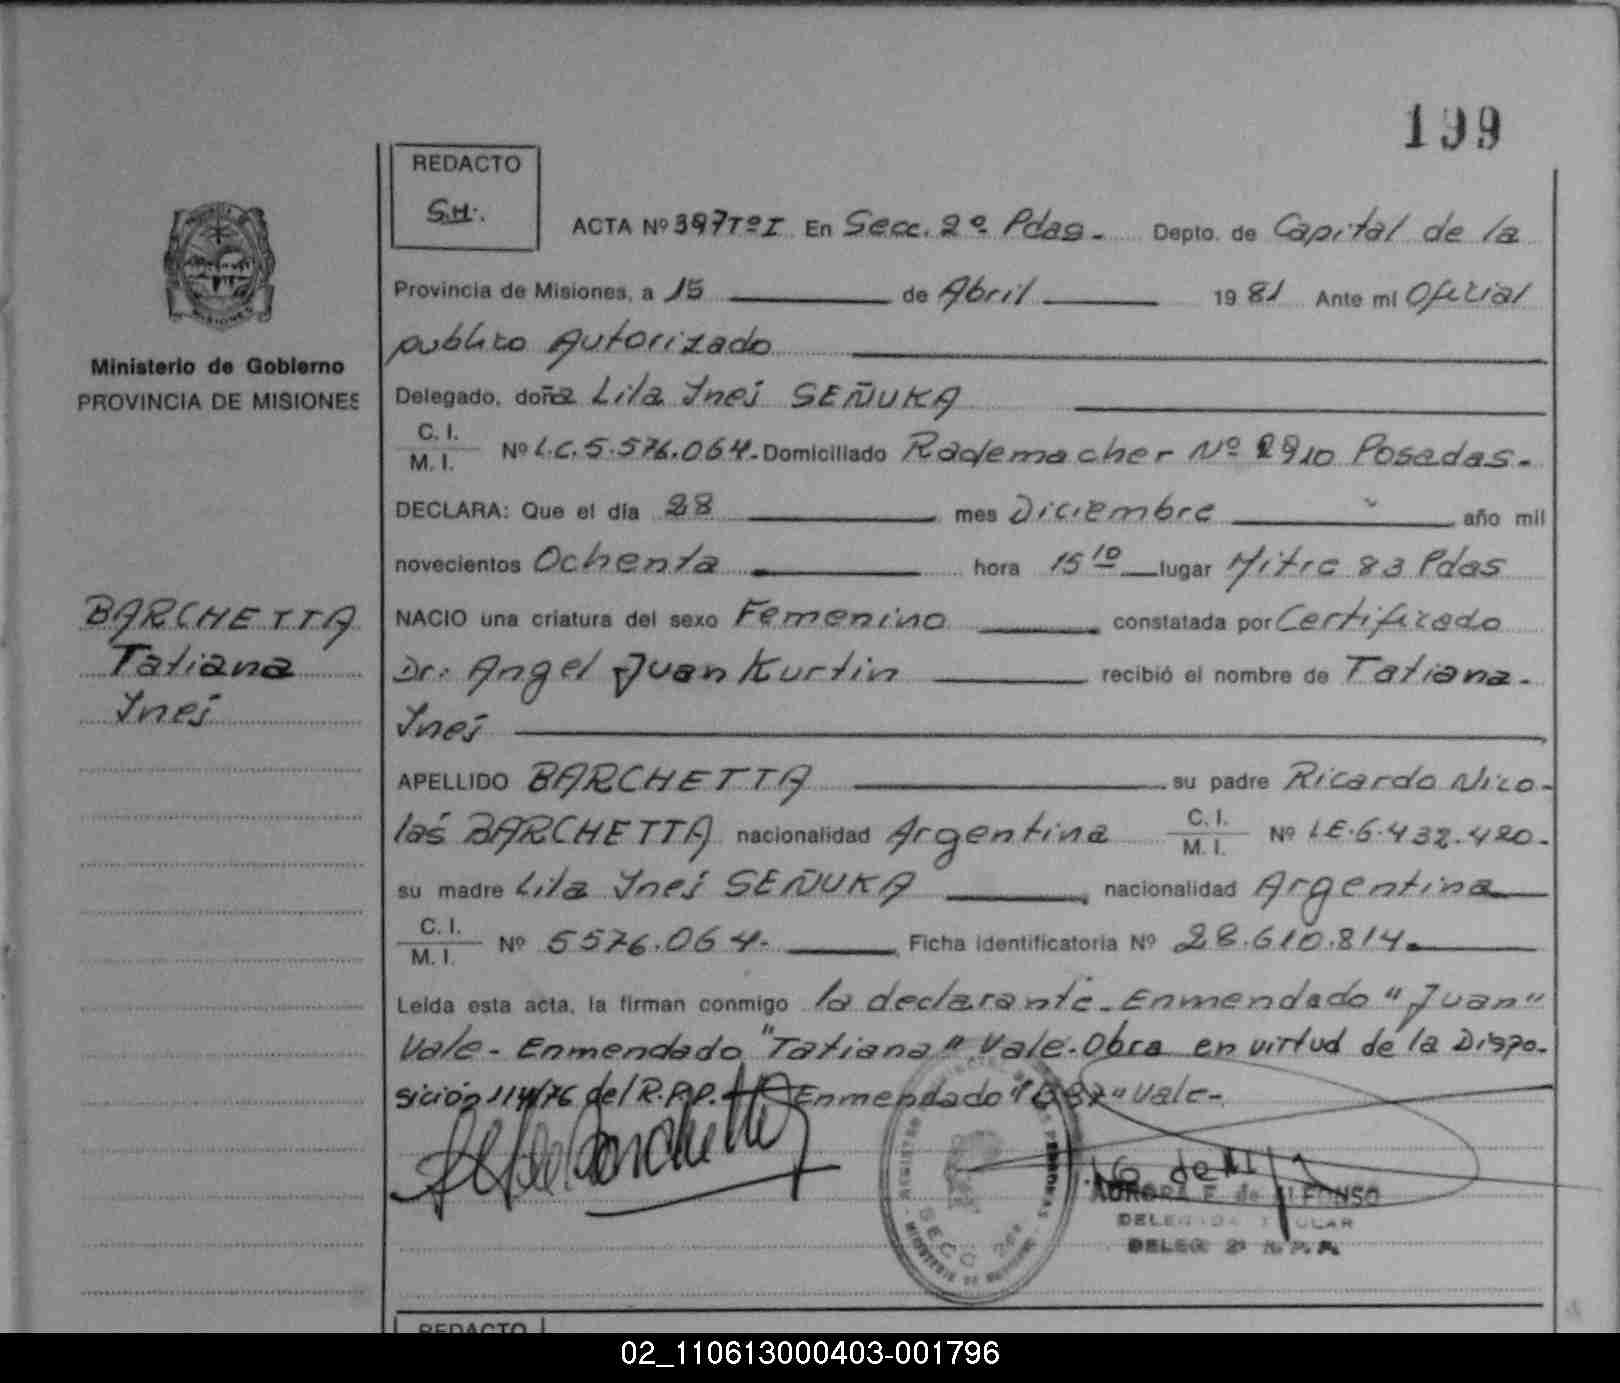 199
REDACTO
S.H.
ACTA Nº 397 TºI En Secc. 2º Pdas. Depto. de Capital de la
Provincia de Misiones, a 15 de Abril 1981 Ante mi Oficial
publico Autorizado
Ministerio de Gobierno
PROVINCIA DE MISIONES
Delegado, doña Lila Inés SEÑUKA
C. I.
M. I. Nº L.C. 5.576.064. Domiciliado Rademacher Nº 2910 Posadas.
DECLARA: Que el día 28 mes Diciembre año mil
novecientos Ochenta hora 15 10 lugar Mitre 83 Pdas
BARCHETTA
Tatiana
Inés
NACIO una criatura del sexo Femenino constatada por Certificado
Dr. Angel Juan Kurtin recibió el nombre de Tatiana
Inés
APELLIDO BARCHETTA su padre Ricardo Nico-
lás BARCHETTA nacionalidad Argentina C. I. M. I. Nº L.E. 6.432.420.
su madre Lila Inés SEÑUKA, nacionalidad Argentina
C. I.
M. I. Nº 5576.064. Ficha identificatoria Nº 28.610.814.
Leída esta acta, la firman conmigo la declarante. Enmendado "Juan"
Vale- Enmendado "Tatiana" Vale. Obra en virtud de la Dispo-
sición 114/76 del R.P.P. Enmendado Vale-
SECC 2da
AURORA F. de ALFONSO
DELEGADA TITULAR
DELEG 2ª R.P.P.
REDACTO
02_110613000403-001796